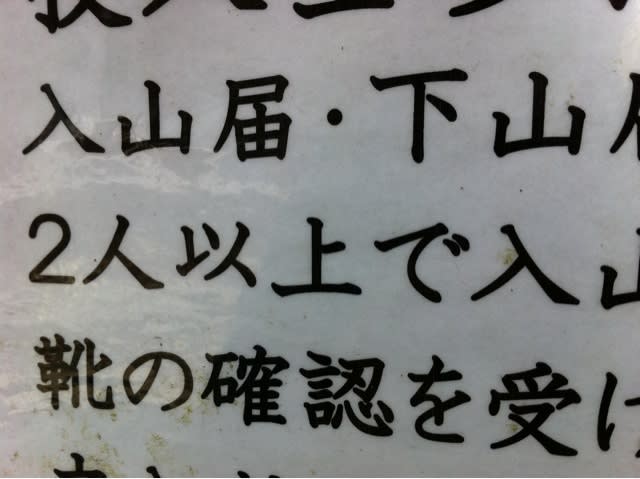 入山届・下山
2人以上で入山
靴の確認を受け